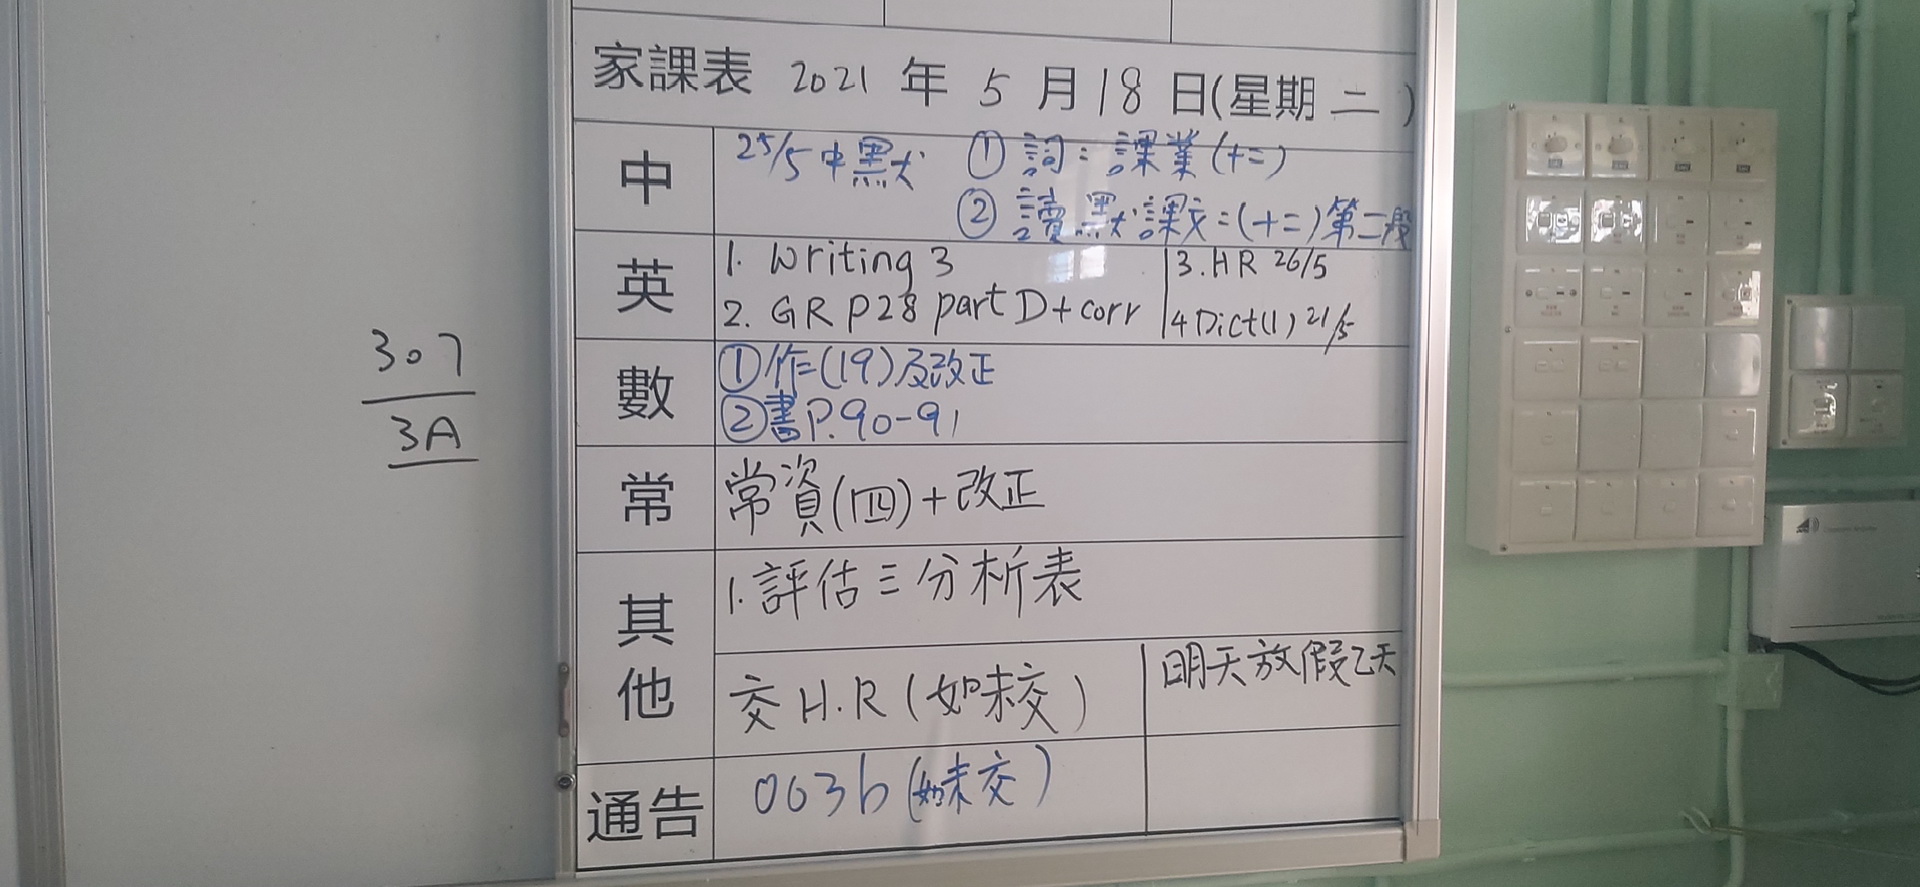 家課表 2021 年 5 月 18 日(星期 二 )
中
25/5 中默 ① 詞: 課業(十二)
② 讀默:課文:(十二)第二段
英
1. Writing 3
2. GR P28 part D + corr
3. HR 26/5
4 Dict(1) 21/5
數
①作(19)及改正
②書P.90-91
常
常資(四)+改正
其他
1. 評估三分析表
交 H.R (如未交)
明天放假乙天
通告
063b (如未交)
307
3A